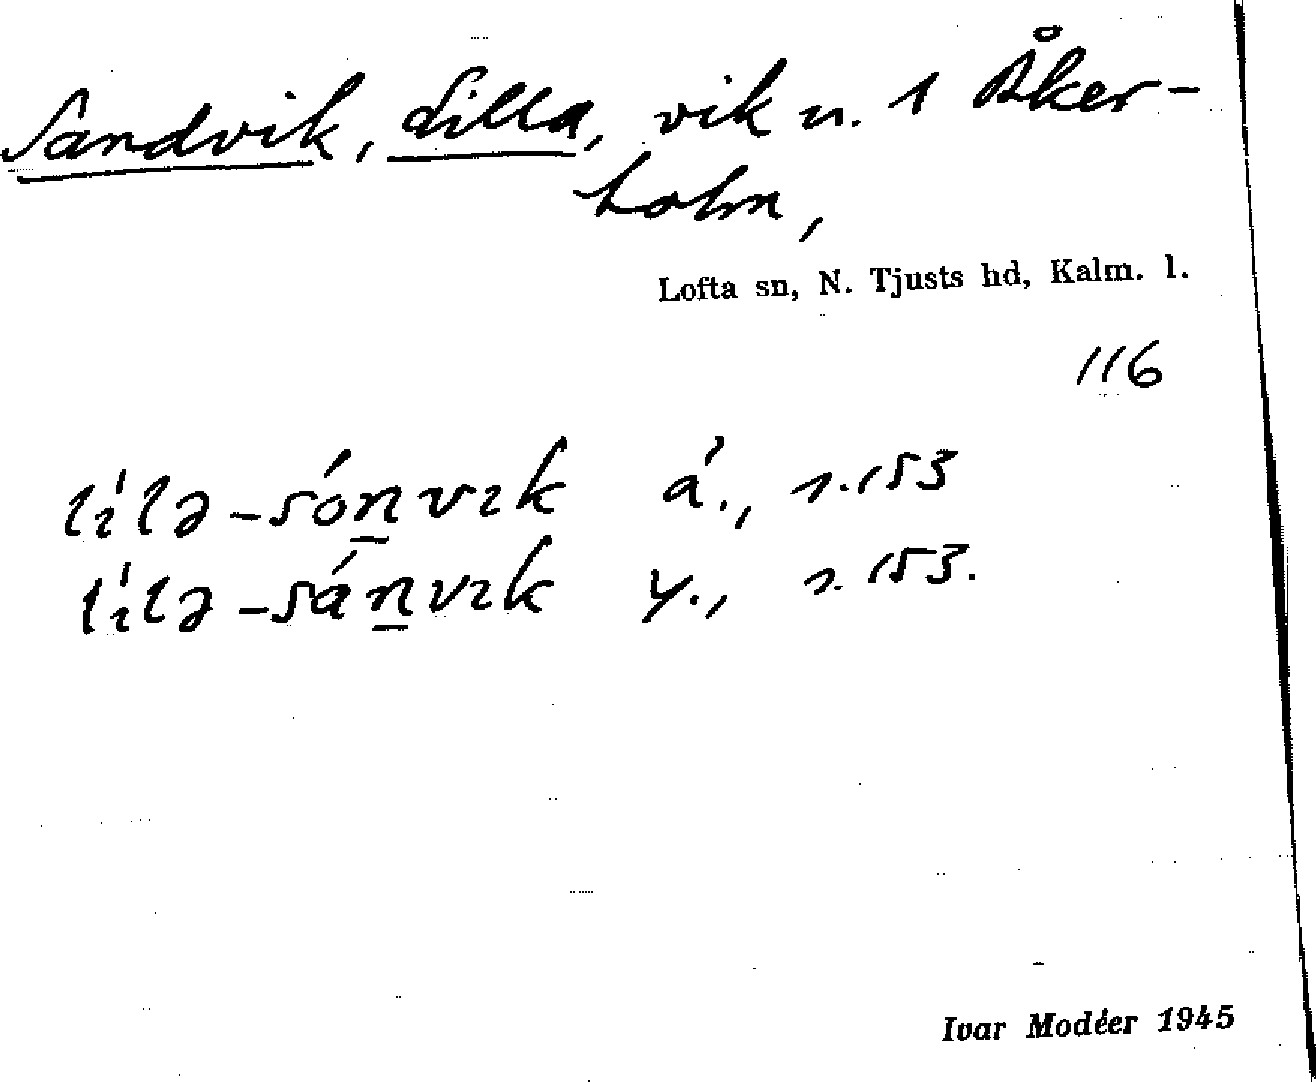 Sandvik, Lilla, vik n. 1 Åker-
holm,
Lofta sn, N. Tjusts hd, Kalm. l.
116
lílə-són̲vık á., s. 153
lílə-sán̲vık y., s. 153.
Ivar Modéer 1945